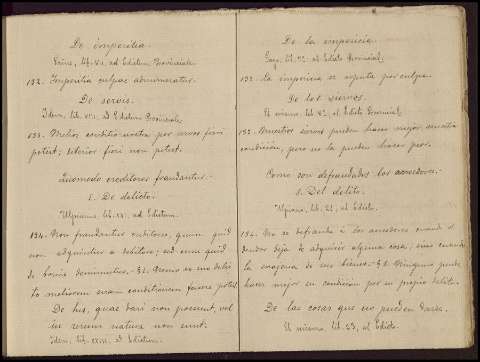 De imperitia.
Gaius, lib. VII, ad Edictum Provinciale.
132. Imperitia culpae adnumeratur.
De servis.
Idem, lib. VIII, ad Edictum Provinciale.
133. Melior conditio nostra per servos fieri
potest; deterior fieri non potest.
Quomodo creditores fraudantur.-
1. De delicto.
Ulpianus, lib. XXI, ad Edictum.
134. Non fraudantur creditores, quum quid
non adquiritur a debitore; sed cum quid
de bonis deminuitur.- §1. Nemo ex suo delic
to meliorem suam conditionem facere potest.
De his, quae dari non possunt, vel
in rerum natura non sunt.
Idem, lib. XXIII, ad Edictum.
De la impericia.
Gayo, lib. VII, al Edicto Provincial.
132. La impericia se reputa por culpa.
De los siervos.
El mismo, lib. 8º, al Edicto Provincial.
133. Nuestros siervos pueden hacer mejor nuestra
condición, pero no la pueden hacer peor.
Como son defraudados los acreedores.-
1. Del delito.
Ulpiano, lib. 21, al Edicto.
134. No se defrauda á los acreedores cuando el
deudor deja de adquirir alguna cosa, sino cuando
la de sus bienes.- §1. Ninguno puede
hacer mejor su condición por su propio delito.
De las cosas que no pueden darse.
El mismo, lib. 23, al Edicto.